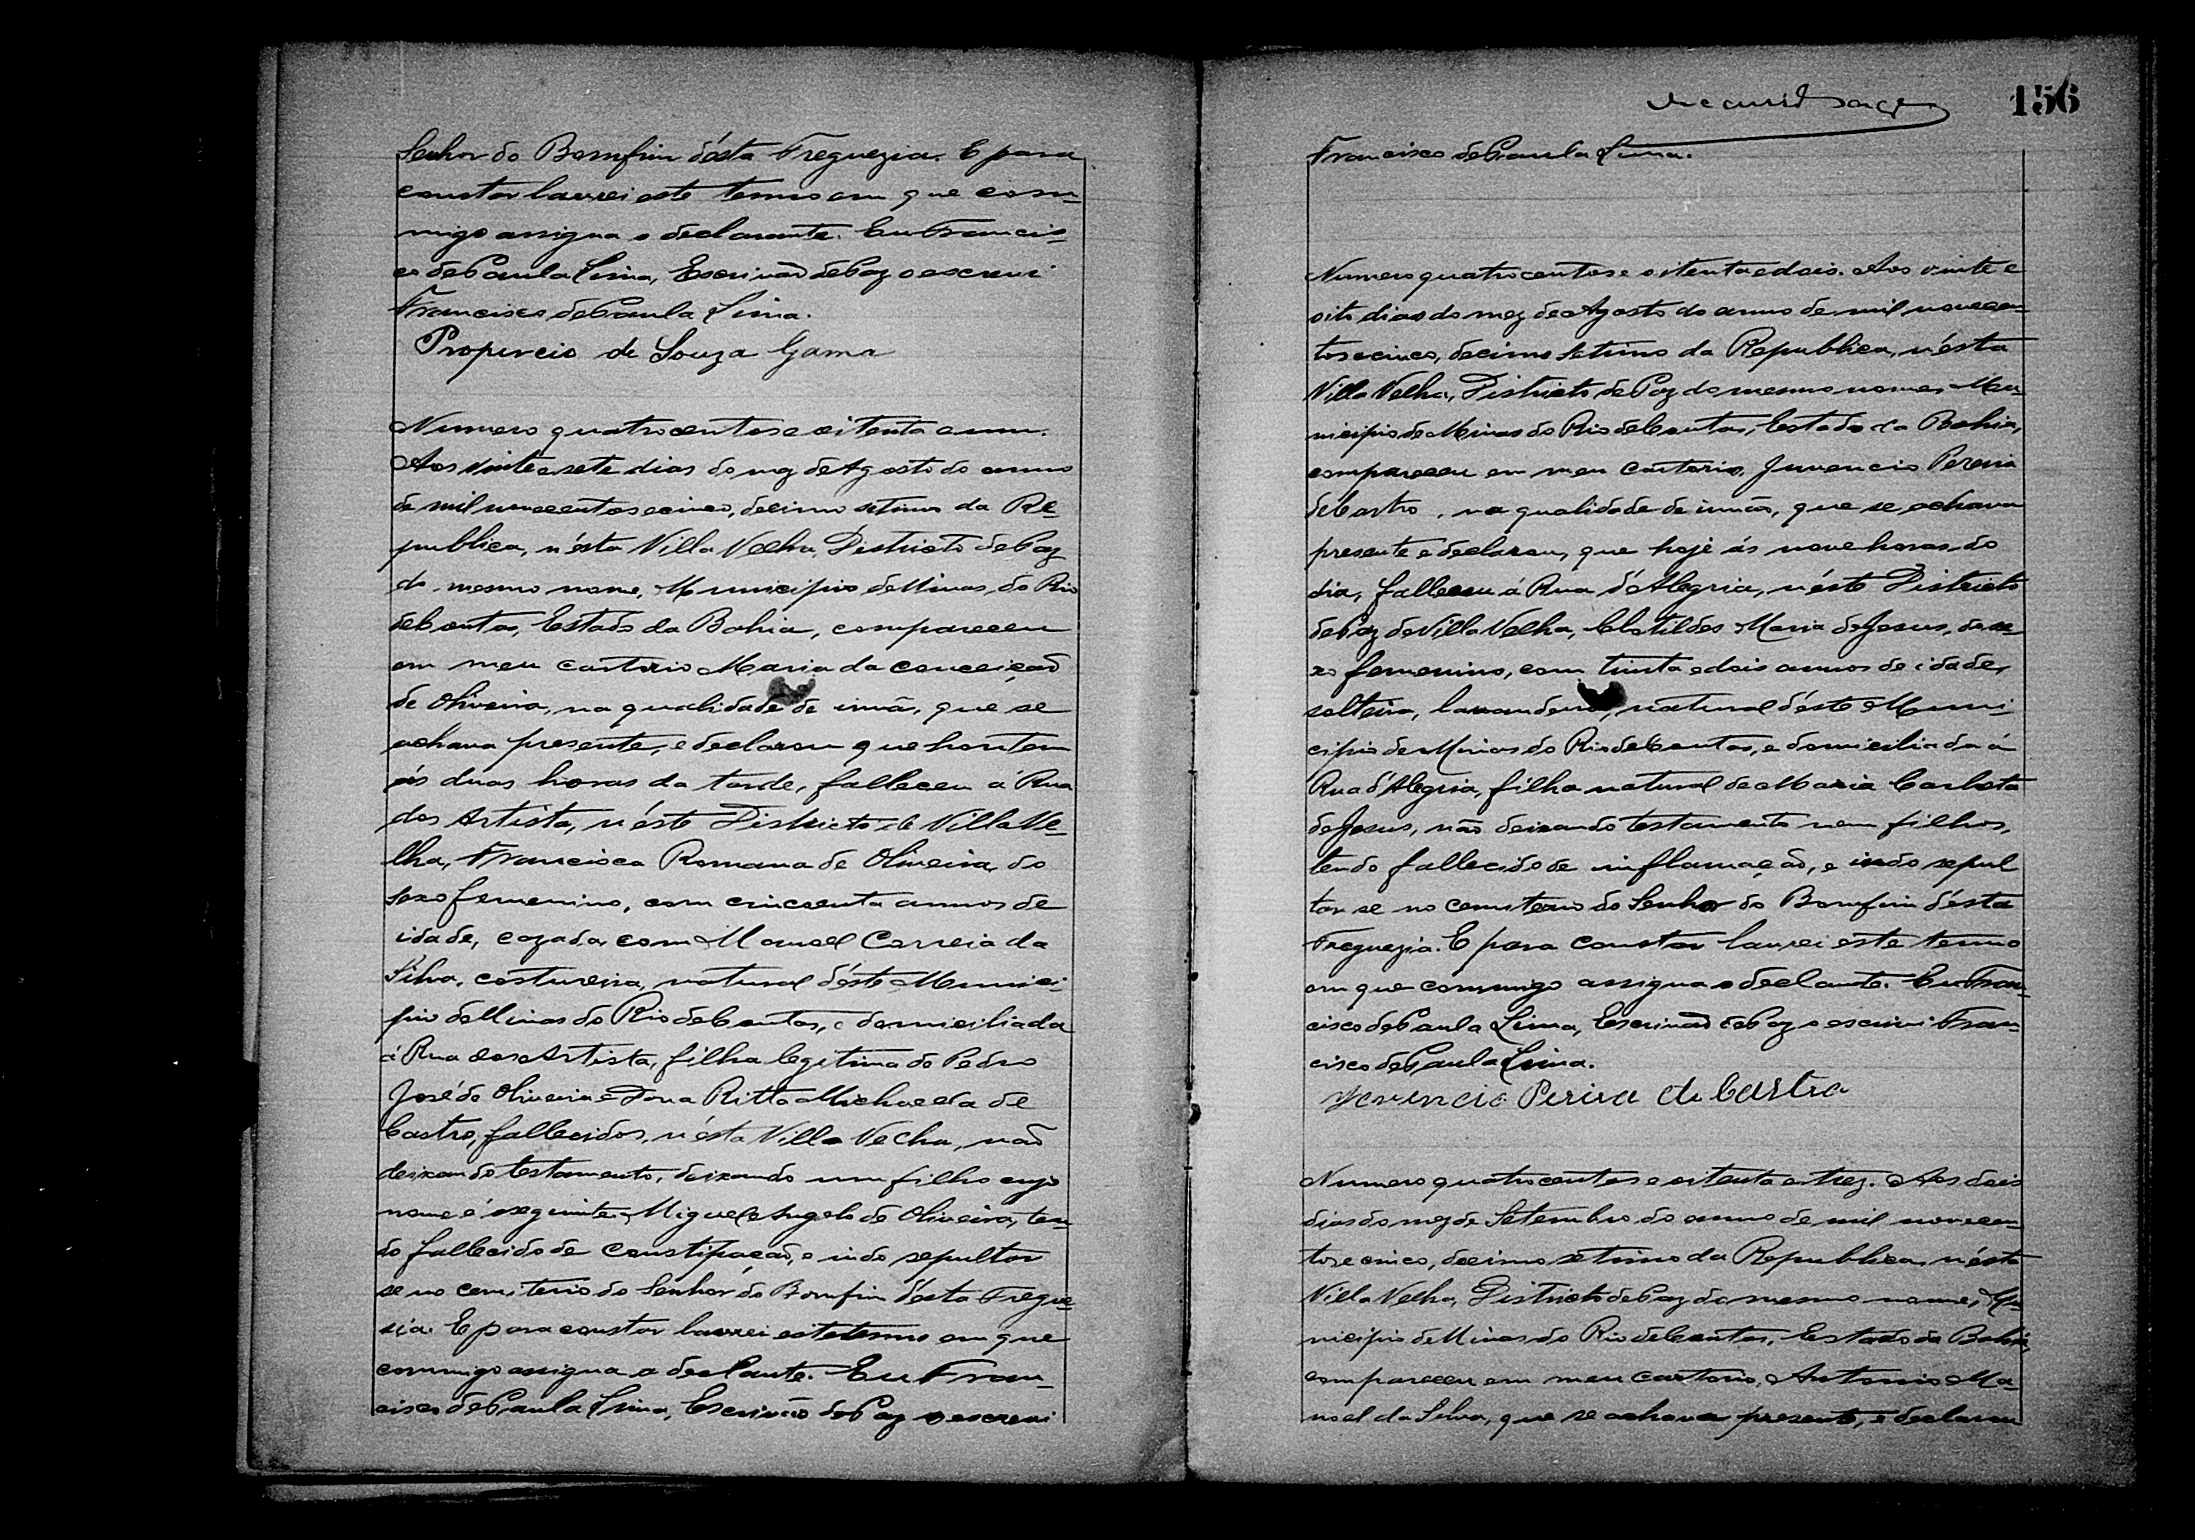 Senhor do Bomfim d'ésta Freguezia. E para
constar lavrei este termo em que com-
migo assigna o declarante. Eu Francis-
co de Paula Lima, Escrivão de Paz o escrevi
Francisco de Paula Lima.
Propercio de Souza Gama
Numero quatrocentos e oitenta e um.
Aos vinte e sete dias do mez de Agosto do anno
de mil novecentos e cinco, decimo setimo da Re-
publica, n'ésta Villa Velha, Districto de Paz
do mesmo nome, Municipio de Minas do Rio
de Contas, Estado da Bahia, compareceu
em meu cartorio Maria da Conceição
de Oliveira, na qualidade de irmã, que se
achava presente, e declarou que hontem
ás duas horas da tarde, falleceu á Rua
dos Artista, n'éste Districto de Villa Ve-
lha, Francisca Romana de Oliveira, do
sexo femenino, com cincoenta annos de
idade, cazada com Manoel Correia da
Silva, costureira, natural d'éste Munici-
pio de Minas do Rio de Contas, e domiciliada
á Rua dos Artista, filha legitima de Pedro
José de Oliveira e Dona Ritta Michaela de
Castro, fallecidos, n'ésta Villa Velha, não
deixando testamento, deixando um filho cujo
nome é o seguinte: Miguel Angelo de Oliveira, ten-
do fallecido de constipação, e indo sepultar
se no cemiterio do Senhor do Bomfim d'ésta Fregue-
sia. E para constar lavrei este termo em que
commigo assigna a declante. Eu Fran-
cisco de Paula Lima, Escrivão de Paz o escrevi
156
Francisco de Paula Lima.
Numero quatrocentos e oitenta e dois. Aos vinte e
oito dias do mez de Agosto do anno de mil novecen-
tos e cinco, decimo setimo da Republica, n'ésta
Villa Velha, Districto de Paz do mesmo nome, Mu-
nicipio de Minas do Rio de Contas, Estado da Bahia,
compareceu em meu cartorio, Juvencio Pereira
de Castro, na qualidade de irmão, que se achava
presente e declarou, que hoje ás nove horas do
dia, falleceu á Rua d'Alegria, n'éste Districto
de Paz de Villa Velha, Clotildes Maria de Jesus, do se-
xo femenino, com trinta e dois annos de idade,
solteira, lavandeira, natural d'éste Muni-
cipio de Minas do Rio de Contas, e domiciliada á
Rua d'Alegria, filha natural de Maria Carlota
de Jesus, não deixando testamento nem filhos,
tendo fallecido de inflamação, e indo sepul
tar se no cemiterio do Senhor do Bomfim d'ésta
Freguezia. E para constar lavrei este termo
em que commigo assigna o declante. Eu Fran-
cisco de Paula Lima, Escrivão de Paz o escrevi Fran-
cisco de Paula Lima.
Juvencio Perira de Castro
Numero quatrocentos e oitenta e trez. Aos dois
dias do mez de Setembro do anno de mil novecen-
tos e cinco, decimo setimo da Republica, n'ésta
Villa Velha, Districto de Paz do mesmo nome, Mu-
nicipio de Minas do Rio de Contas, Estado da Bahia,
compareceu em meu cartorio, Antonio Ma-
noel da Silva, que se achava presente, e declarou